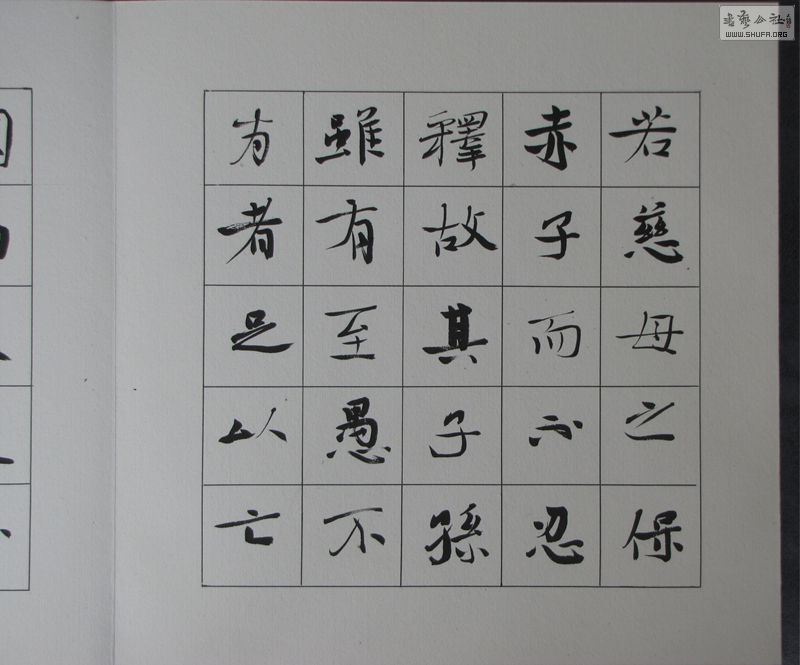 若慈母之保
赤子而不忍
釋故其子孫
雖有至愚不
肖者足以亡
書藝公社
WWW.SHUFA.ORG